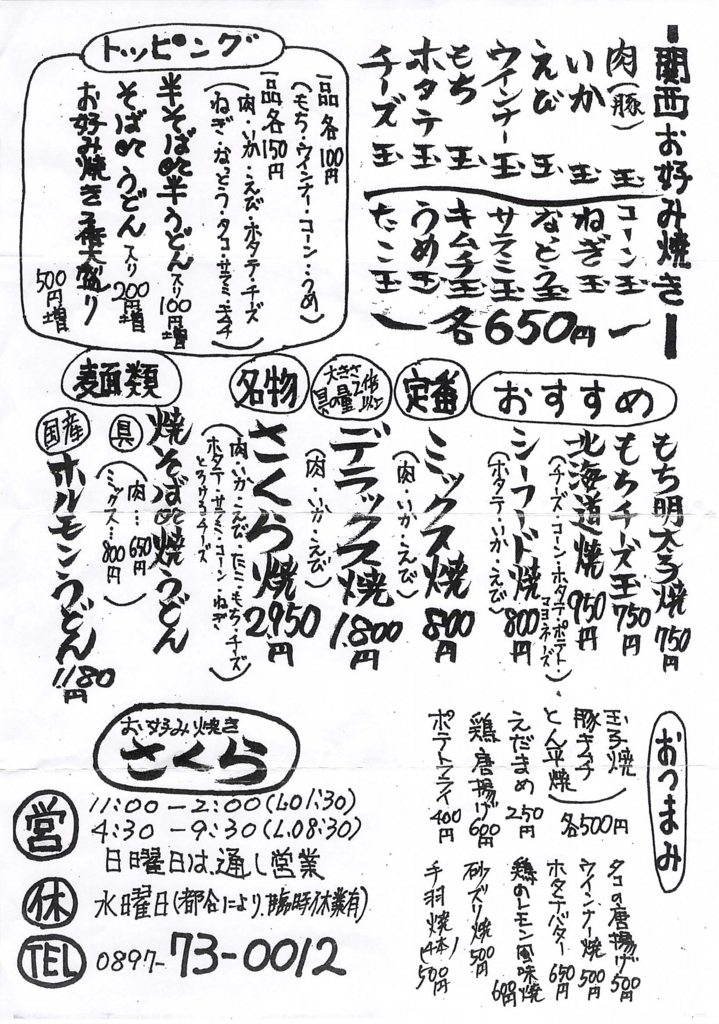 関西お好み焼き
肉(豚)玉
いか玉
えび玉
ウインナー玉
もち玉
ホタテ玉
チーズ玉
コーン玉
ねぎ玉
なっとう玉
サラミ玉
キムチ玉
うめ玉
たこ玉
各650円
トッピング
一品各100円
(もち・ウインナー・コーン・うめ)
一品各150円
(肉・いか・えび・ホタテ・チーズ
ねぎ・なっとう・タコ・サラミ・キムチ)
半そばor半うどん入り100円増
そばorうどん入り200円増
お好み焼き大盛り
500円増
おすすめ
もち明太子焼750円
もちチーズ玉750円
北海道焼950円
(チーズ・コーン・ホタテ・ポテト・
マヨネーズ)
シーフード焼800円
(ホタテ・いか・えび)
定番
ミックス焼800円
(肉・いか・えび)
大きさ
具の量2倍
以上
デラックス焼1,800円
(肉・いか・えび)
名物
さくら焼2,950円
(肉・いか・えび・たこ・もち・チーズ
ホタテ・サラミ・コーン・ねぎ
とろけるチーズ)
麺類
焼そばor焼うどん
具
(肉…650円
ミックス…800円)
国産
ホルモンうどん1,180円
おつまみ
玉子焼
豚キムチ
とん平焼
各500円
えだまめ250円
鶏唐揚げ600円
ポテトフライ400円
タコの唐揚げ500円
ウインナー焼500円
ホタテバター650円
鶏のレモン風味焼600円
砂ズリ焼500円
手羽焼(4本)500円
お好み焼き
さくら
営
11:00－2:00(L.O1:30)
4:30－9:30(L.O8:30)
日曜日は、通し営業
休
水曜日(都合により、臨時休業有)
TEL
0897-73-0012